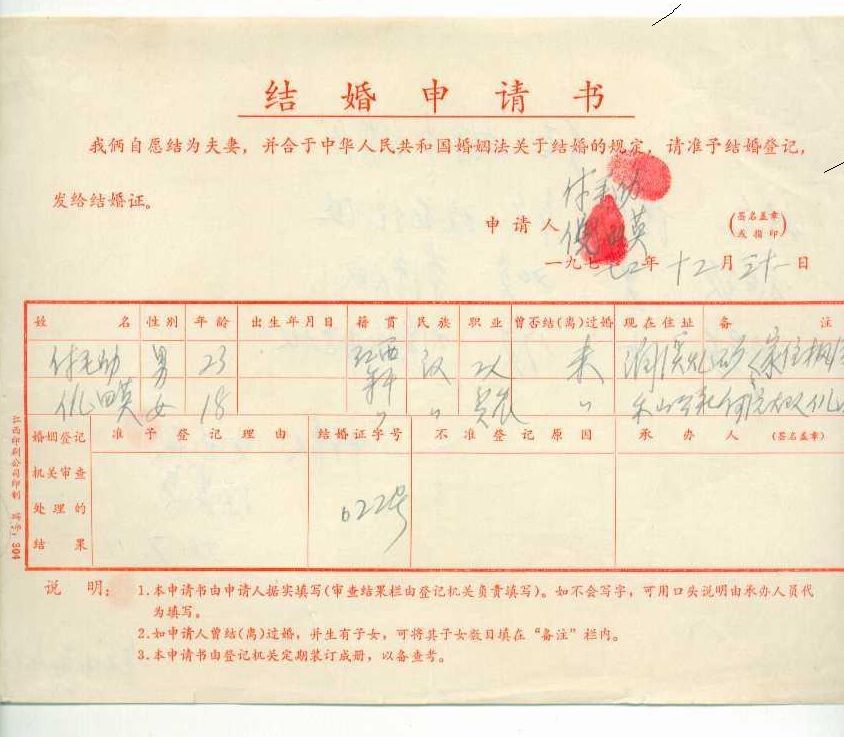 结婚申请书
我俩自愿结为夫妻，并合于中华人民共和国婚姻法关于结婚的规定，请准予结婚登记，
发给结婚证。
申请人
(签名盖章
或指印)
一九七 年十二月三十一日
姓名 性别 年龄 出生年月日 籍贯 民族 职业 曾否结(离)过婚 现在住址 备注
男 23 江西 汉 工人 未
女 18 〃 〃 贫农 〃
婚姻登记
机关审查
处理的
结果
准予登记理由 结婚证字号 不准登记原因 承办人 (签名盖章)
022号
江西印刷公司印制 编号：304
说明：1.本申请书由申请人据实填写(审查结果栏由登记机关负责填写)。如不会写字，可用口头说明由承办人员代
为填写。
2.如申请人曾结(离)过婚，并生有子女，可将其子女数目填在“备注”栏内。
3.本申请书由登记机关定期装订成册，以备查考。